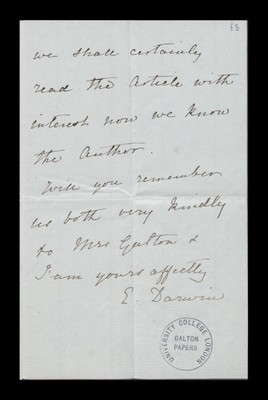 63
we shall certainly
read the Article with
interest now we know
the Author.
Will you remember
us both very kindly
to Mrs Galton &
I am yours affectly
E. Darwin
UNIVERSITY COLLEGE LONDON
GALTON
PAPERS